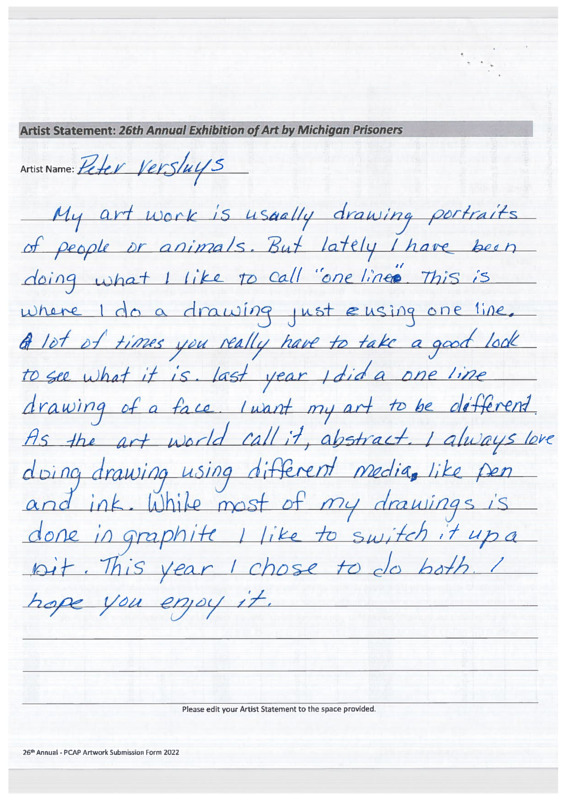 Artist Statement: 26th Annual Exhibition of Art by Michigan Prisoners
Artist Name: Peter Versluys
My art work is usually drawing portraits
of people or animals. But lately I have been
doing what I like to call "one line". This is
where I do a drawing just using one line.
A lot of times you really have to take a good look
to see what it is. last year I did a one line
drawing of a face. I want my art to be different.
As the art world call it, abstract. I always love
doing drawing using different media, like pen
and ink. While most of my drawings is
done in graphite I like to switch it up a
bit. This year I chose to do both. I
hope you enjoy it.
Please edit your Artist Statement to the space provided.
26th Annual - PCAP Artwork Submission Form 2022